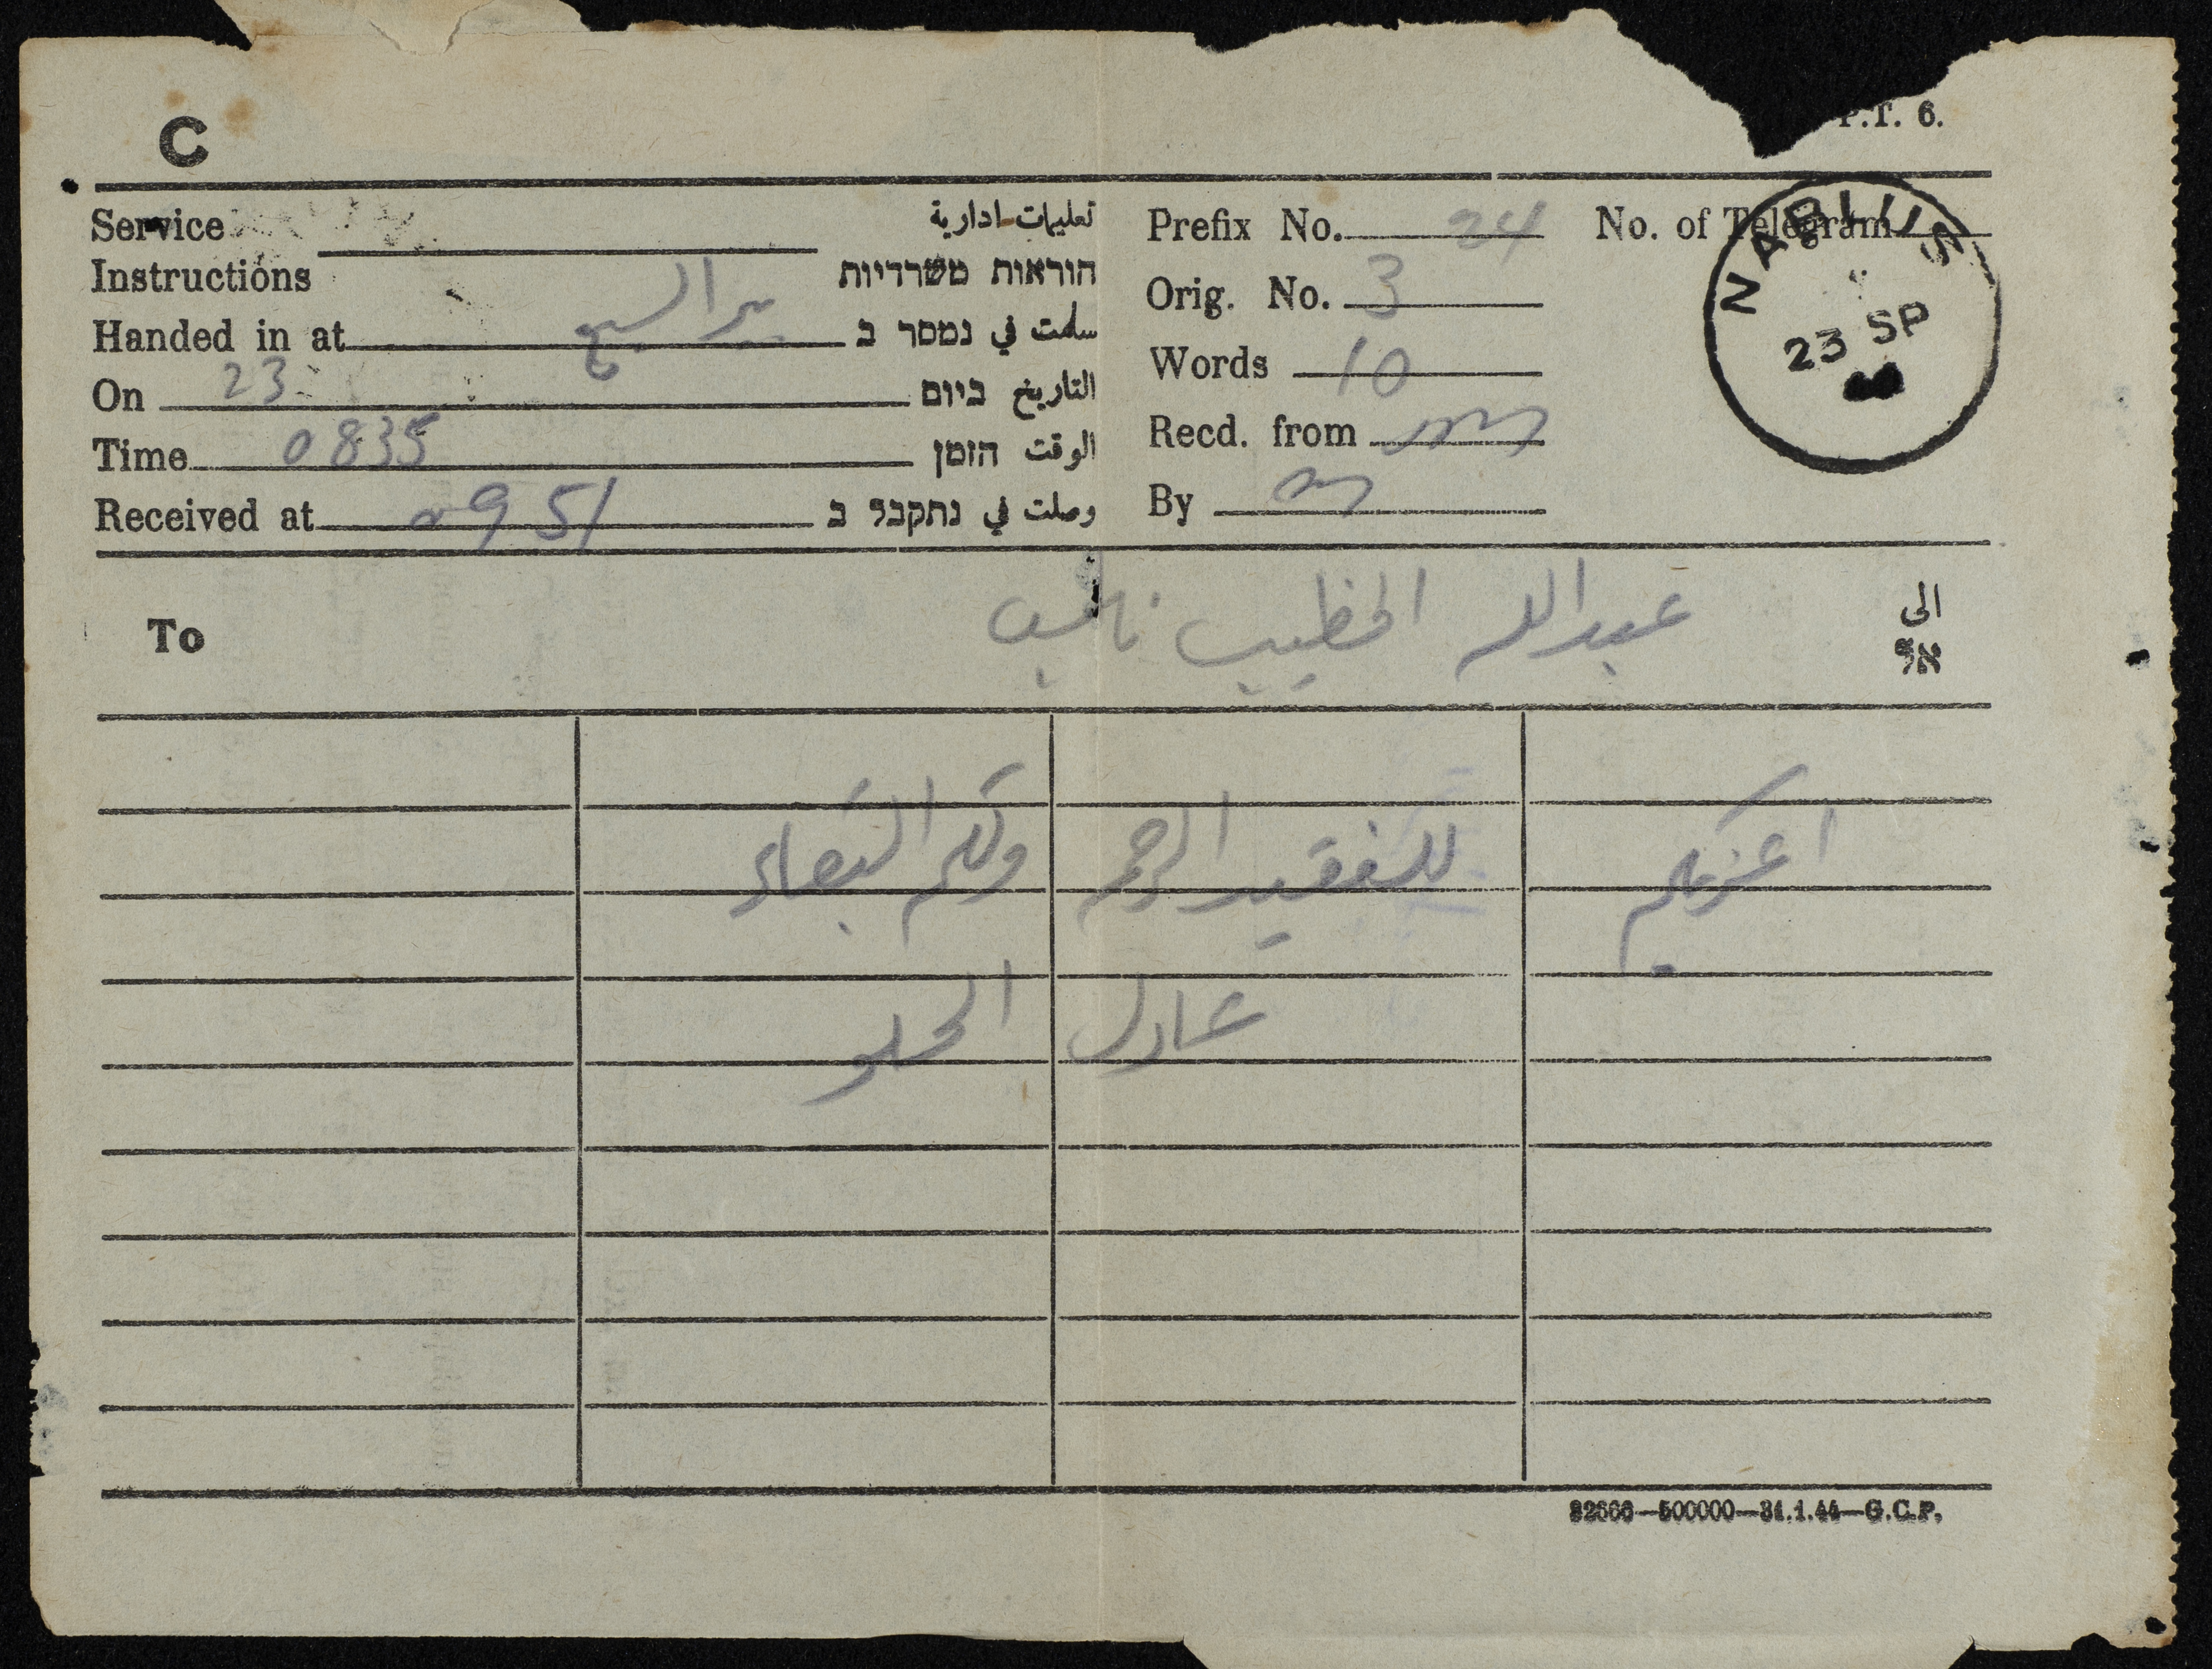 C
P.T. 6.
Service Instructions تعليمات ادارية
הוראות משרדיות
Prefix No. 24 No. of Telegram
NABLUS
23 SP
Orig. No. 3
Handed in at بير السبع سلمت في נמסר ב
Words 10
On 23 التاريخ ביום
Recd. from
Time 0835 الوقت הזמן
By
Received at 0951 وصلت في נתקבל ב
To عبدالله الخطيب نابلس الى
אל
اعزيكم للفقيد الرحمه ولكم البقاء
عادل الحلو
32666—500000—31.1.44—G.C.P.